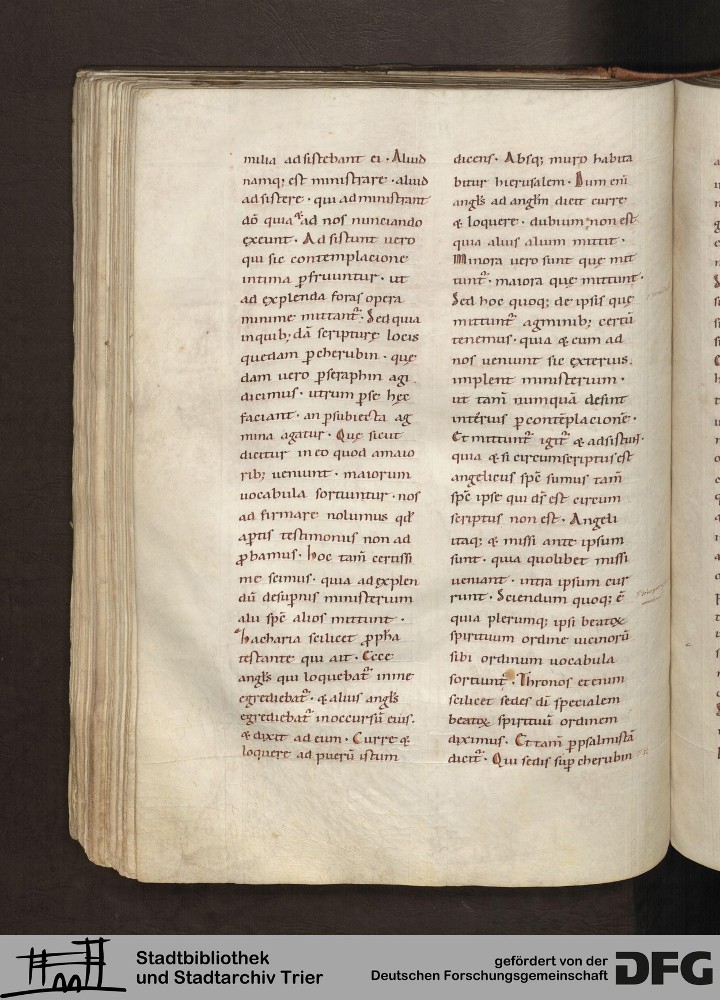 milia adsistebant ei · Aliud
namq; est ministrare · aliud
adsistere · qui administrant
dõ quia & ad nos nunciando
exeunt · Adsistunt uero
qui sic contemplacione
intima ꝑfruuntur · ut
ad explenda foras opera
minime mittant᷑ · Sed quia
in quib; dã scripturę locis
quedam ꝑ cherubin · quę
dam uero ꝑ seraphin agi
dicimus · utrum ꝑ se hęc
faciant · an ꝑ subiecta ag
mina agatur · Quę sicut
dicitur in eo quod a maio
rib; ueniunt · maiorum
uocabula sortiuntur · nos
adfirmare nolumus qđ
aptis testimoniis non ad
ꝓbamus · hoc tam̃ certissi
me scimus · quia ad explen
dũ desuꝑnis ministerium
alii spc̃ alios mittunt ·
Zacharia scilicet ꝓpha
testante qui ait · Ecce
angls qui loquebat᷑ in me
egrediebat᷑ · & alius angls
egrediebat᷑ in occursũ eius ·
& dixit ad eum · Curre &
loquere ad puerũ istum
dicens · Absq; muro habita
bitur hierusalem · Dum eni
angls ad anglm dicit curre
& loquere · dubium non est
quia alius alium mittit ·
Minora uero sunt quę mit
tunt᷑ · maiora quę mittunt ·
Sed hoc quoq; de ipsis quę
mittunt᷑ agminib; certũ
tenemus · quia & cum ad
nos ueniunt sic exterius
implent ministerium ·
ut tam̃ numquã desint
interius ꝑ contẽplacionẽ ·
Et mittunt᷑ igit᷑ & adsistunt ·
quia & si circumscriptus est
angelicus spc̃ sumus tam̃
spc̃ ipse qui dr̃ est circum
scriptus non est · Angeli
itaq; & missi ante ipsum
sunt · quia quolibet missi
ueniant · intra ipsum cur
runt · Sciendum quoq; ẽ
quia plerumq; ipsi beatoꝝ
spirituum ordine uicinorũ
sibi ordinum uocabula
sortiunt᷑ · Thronos etenim
scilicet sedes dĩ specialem
beatoꝝ spirituũ ordinem
diximus · Et tam̃ ꝑ psalmistã
dicit᷑ · Qui sedis suꝑ cherubin
Stadtbibliothek
und Stadtarchiv Trier
gefördert von der
Deutschen Forschungsgemeinschaft
DFG